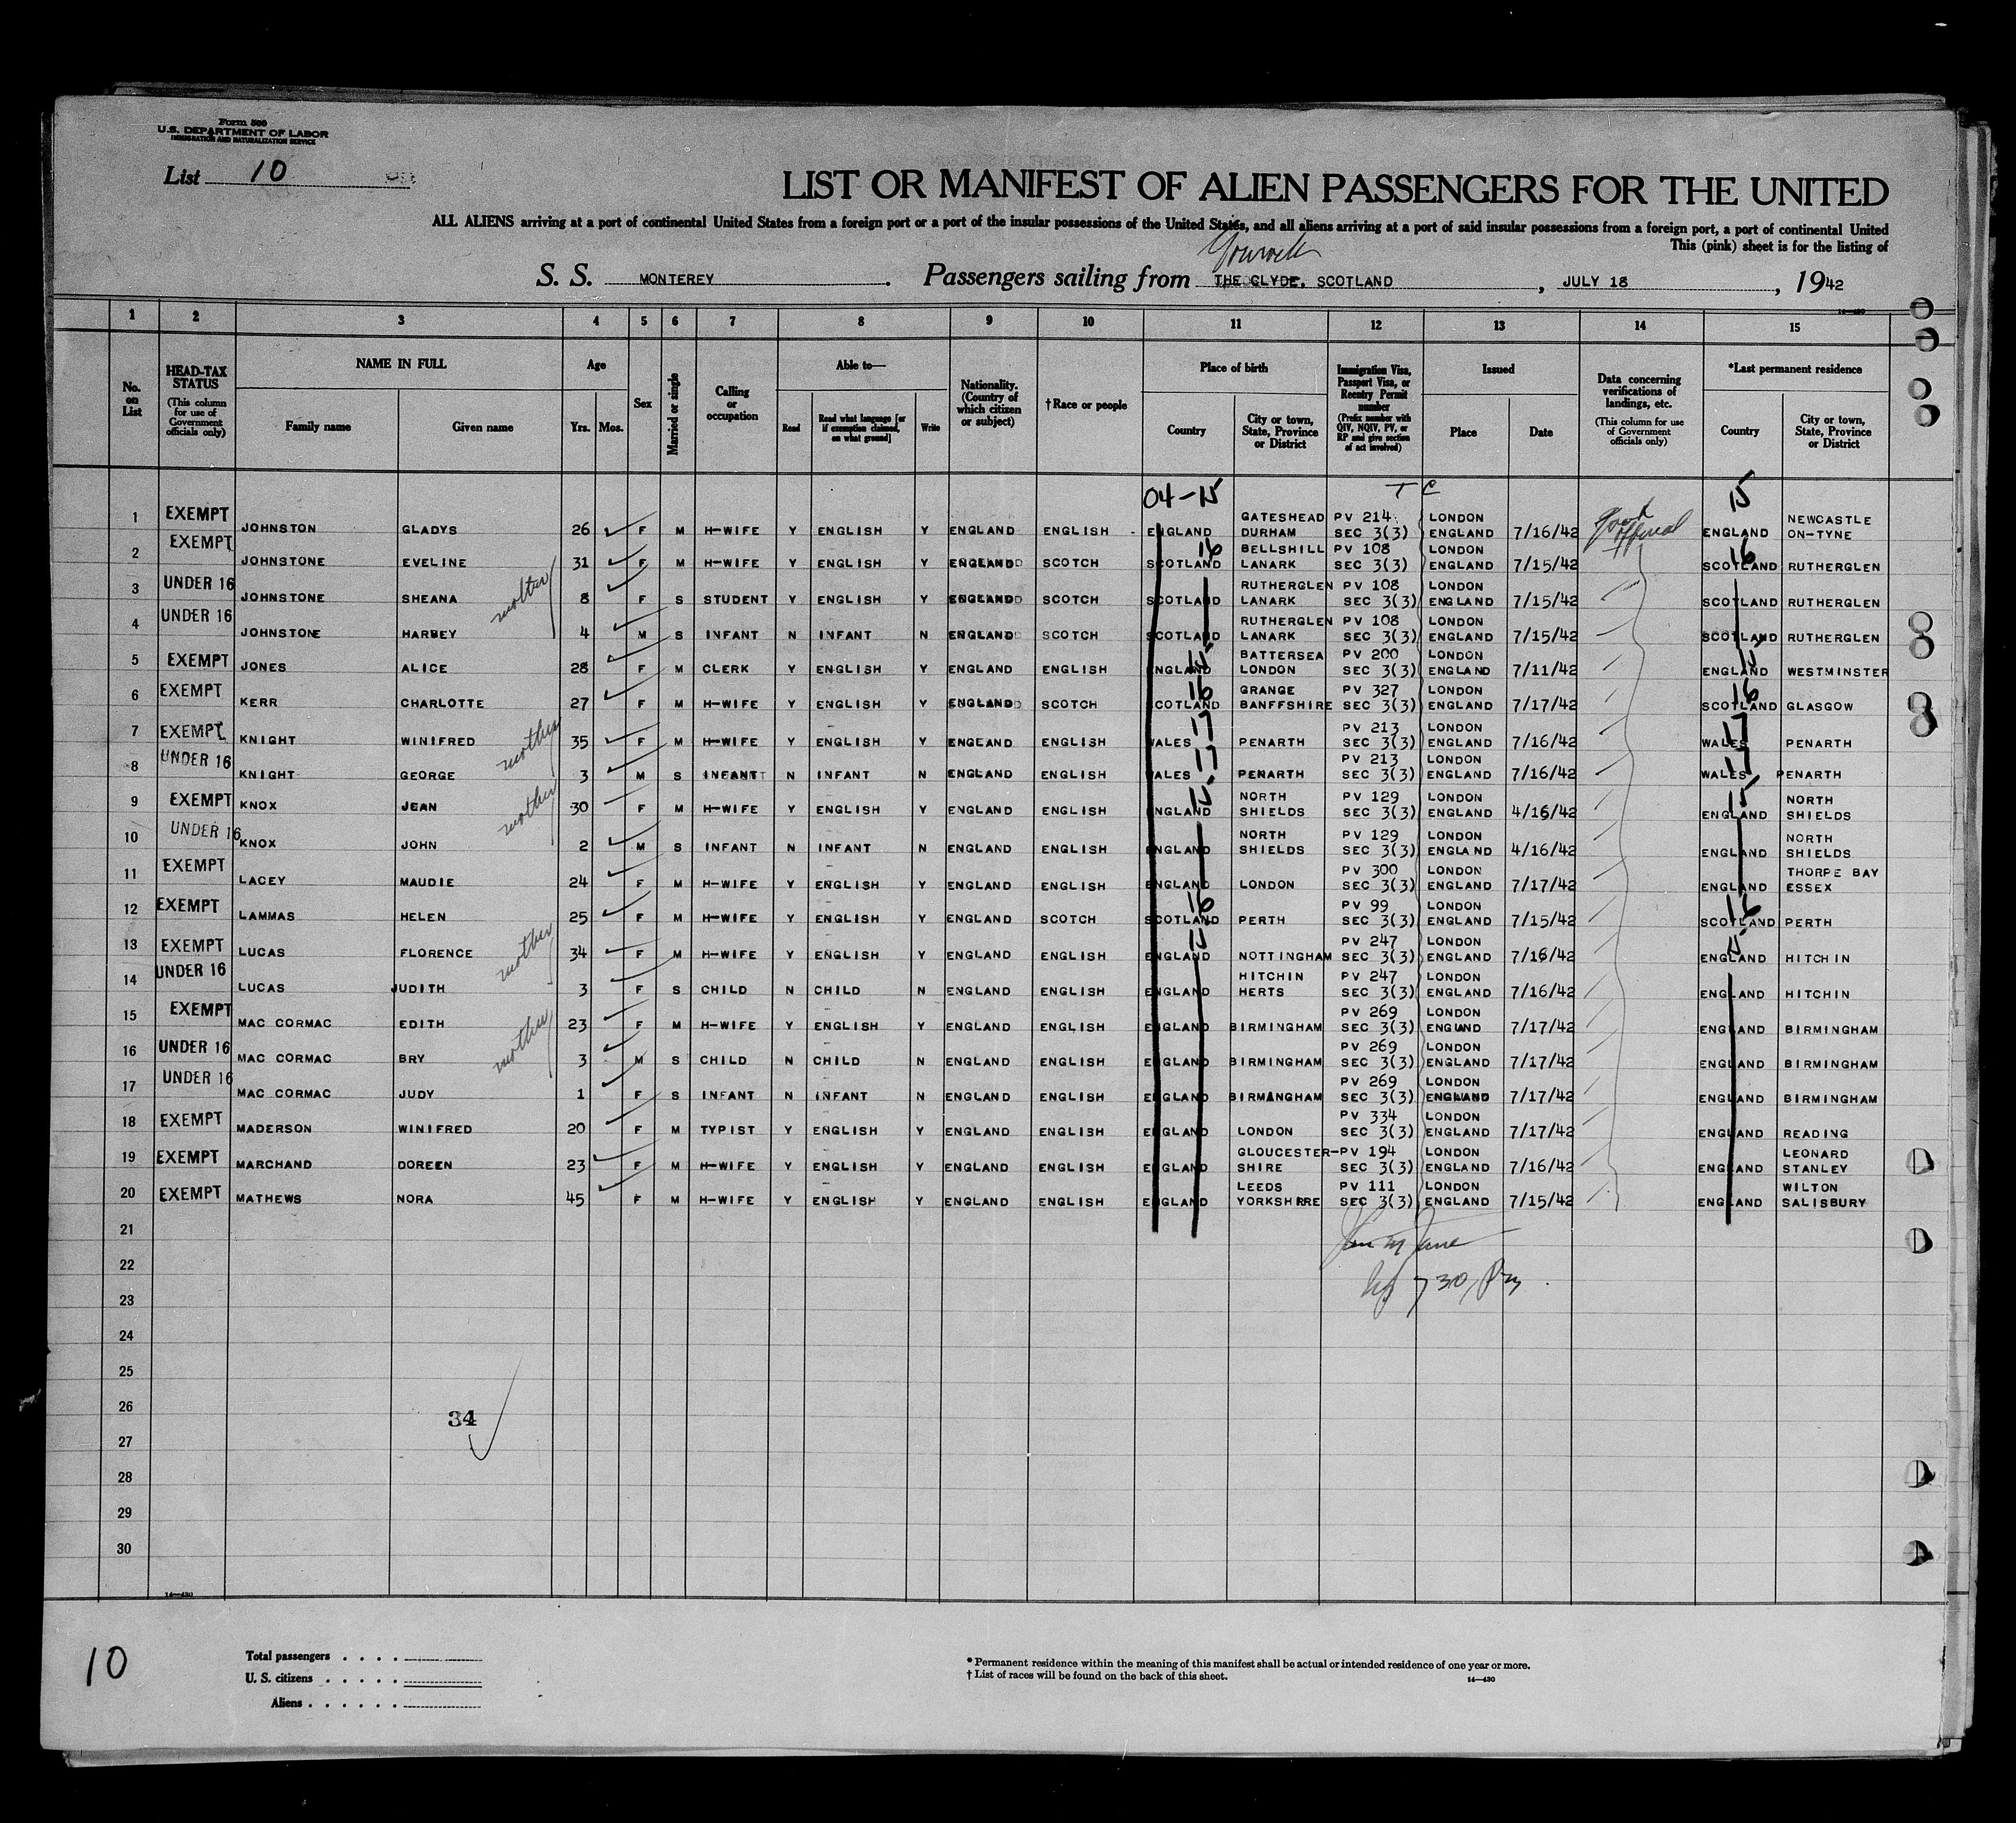 Form 500
U.S. DEPARTMENT OF LABOR
IMMIGRATION AND NATURALIZATION SERVICE
List 10
LIST OR MANIFEST OF ALIEN PASSENGERS FOR THE UNITED
ALL ALIENS arriving at a port of continental United States from a foreign port or a port of the insular possessions of the United States, and all aliens arriving at a port of said insular possessions from a foreign port, a port of continental United
This (pink) sheet is for the listing of
Gourock
S. S. MONTEREY. Passengers sailing from THE CLYDE, SCOTLAND, JULY 18, 1942
14—430
1 2 3 4 5 6 7 8 9 10 11 12 13 14 15
No. on List
HEAD-TAX STATUS (This column for use of Government officials only)
NAME IN FULL
Family name
Given name
Age
Yrs. Mos.
Sex
Married or single
Calling or occupation
Able to—
Read
Read what language [or if exemption claimed, on what ground]
Write
Nationality. (Country of which citizen or subject)
†Race or people
Place of birth
Country
City or town, State, Province or District
Immigration Visa, Passport Visa, or Reentry Permit number (Prefix number with QIV, NQIV, PV, or RP and give section of act involved)
Issued
Place
Date
Data concerning verifications of landings, etc. (This column for use of Government officials only)
*Last permanent residence
Country
City or town, State, Province or District
04-15 T C 15
1 EXEMPT JOHNSTON GLADYS 26 F M H-WIFE Y ENGLISH Y ENGLAND ENGLISH ENGLAND GATESHEAD DURHAM PV 214 SEC 3(3) LONDON ENGLAND 7/16/42 ENGLAND NEWCASTLE ON-TYNE
2 EXEMPT JOHNSTONE EVELINE 31 F M H-WIFE Y ENGLISH Y ENGLAND SCOTCH 16 SCOTLAND BELLSHILL LANARK PV 108 SEC 3(3) LONDON ENGLAND 7/15/42 16 SCOTLAND RUTHERGLEN
3 UNDER 16 JOHNSTONE SHEANA mother 8 F S STUDENT Y ENGLISH Y ENGLAND SCOTCH SCOTLAND RUTHERGLEN LANARK PV 108 SEC 3(3) LONDON ENGLAND 7/15/42 SCOTLAND RUTHERGLEN
4 UNDER 16 JOHNSTONE HARVEY 4 M S INFANT N INFANT N ENGLAND SCOTCH SCOTLAND RUTHERGLEN LANARK PV 108 SEC 3(3) LONDON ENGLAND 7/15/42 SCOTLAND RUTHERGLEN
5 EXEMPT JONES ALICE 28 F M CLERK Y ENGLISH Y ENGLAND ENGLISH 15 ENGLAND BATTERSEA LONDON PV 200 SEC 3(3) LONDON ENGLAND 7/11/42 15 ENGLAND WESTMINSTER
6 EXEMPT KERR CHARLOTTE 27 F M H-WIFE Y ENGLISH Y ENGLAND SCOTCH 16 SCOTLAND GRANGE BANFFSHIRE PV 327 SEC 3(3) LONDON ENGLAND 7/17/42 16 SCOTLAND GLASGOW
7 EXEMPT KNIGHT WINIFRED mother 35 F M H-WIFE Y ENGLISH Y ENGLAND ENGLISH 17 WALES PENARTH PV 213 SEC 3(3) LONDON ENGLAND 7/16/42 17 WALES PENARTH
8 UNDER 16 KNIGHT GEORGE 3 M S INFANT N INFANT N ENGLAND ENGLISH 17 WALES PENARTH PV 213 SEC 3(3) LONDON ENGLAND 7/16/42 17 WALES PENARTH
9 EXEMPT KNOX JEAN mother 30 F M H-WIFE Y ENGLISH Y ENGLAND ENGLISH 15 ENGLAND NORTH SHIELDS PV 129 SEC 3(3) LONDON ENGLAND 4/16/42 15 ENGLAND NORTH SHIELDS
10 UNDER 16 KNOX JOHN 2 M S INFANT N INFANT N ENGLAND ENGLISH ENGLAND NORTH SHIELDS PV 129 SEC 3(3) LONDON ENGLAND 4/16/42 ENGLAND NORTH SHIELDS
11 EXEMPT LACEY MAUDIE 24 F M H-WIFE Y ENGLISH Y ENGLAND ENGLISH ENGLAND LONDON PV 300 SEC 3(3) LONDON ENGLAND 7/17/42 ENGLAND THORPE BAY ESSEX
12 EXEMPT LAMMAS HELEN 25 F M H-WIFE Y ENGLISH Y ENGLAND SCOTCH 16 SCOTLAND PERTH PV 99 SEC 3(3) LONDON ENGLAND 7/15/42 16 SCOTLAND PERTH
13 EXEMPT LUCAS FLORENCE mother 34 F M H-WIFE Y ENGLISH Y ENGLAND ENGLISH 15 ENGLAND NOTTINGHAM PV 247 SEC 3(3) LONDON ENGLAND 7/16/42 15 ENGLAND HITCHIN
14 UNDER 16 LUCAS JUDITH 3 F S CHILD N CHILD N ENGLAND ENGLISH ENGLAND HITCHIN HERTS PV 247 SEC 3(3) LONDON ENGLAND 7/16/42 ENGLAND HITCHIN
15 EXEMPT MAC CORMAC EDITH mother 23 F M H-WIFE Y ENGLISH Y ENGLAND ENGLISH ENGLAND BIRMINGHAM PV 269 SEC 3(3) LONDON ENGLAND 7/17/42 ENGLAND BIRMINGHAM
16 UNDER 16 MAC CORMAC BRY 3 M S CHILD N CHILD N ENGLAND ENGLISH ENGLAND BIRMINGHAM PV 269 SEC 3(3) LONDON ENGLAND 7/17/42 ENGLAND BIRMINGHAM
17 UNDER 16 MAC CORMAC JUDY 1 F S INFANT N INFANT N ENGLAND ENGLISH ENGLAND BIRMANGHAM PV 269 SEC 3(3) LONDON ENGLAND 7/17/42 ENGLAND BIRMINGHAM
18 EXEMPT MADERSON WINIFRED 20 F M TYPIST Y ENGLISH Y ENGLAND ENGLISH ENGLAND LONDON PV 334 SEC 3(3) LONDON ENGLAND 7/17/42 ENGLAND READING
19 EXEMPT MARCHAND DOREEN 23 F M H-WIFE Y ENGLISH Y ENGLAND ENGLISH ENGLAND GLOUCESTER-SHIRE PV 194 SEC 3(3) LONDON ENGLAND 7/16/42 ENGLAND LEONARD STANLEY
20 EXEMPT MATHEWS NORA 45 F M H-WIFE Y ENGLISH Y ENGLAND ENGLISH ENGLAND LEEDS YORKSHIRE PV 111 SEC 3(3) LONDON ENGLAND 7/15/42 ENGLAND WILTON SALISBURY
21
22 7 30 Pm
23
24
25
26 34
27
28
29
30
14—430
10
Total passengers
U. S. citizens
Aliens
* Permanent residence within the meaning of this manifest shall be actual or intended residence of one year or more.
† List of races will be found on the back of this sheet.
14—430